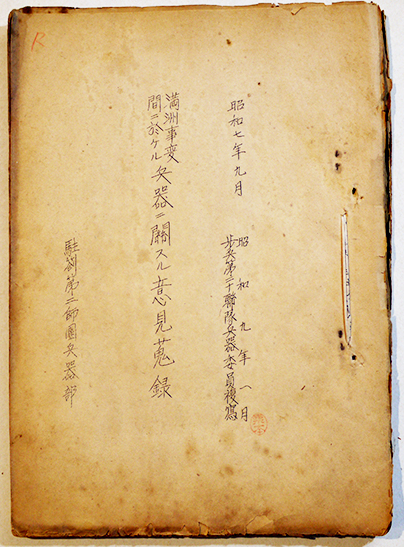 昭和七年九月
昭和九年一月
歩兵第二十聯隊兵器委員複寫
満洲事変
間ニ於ケル兵器ニ關スル意見蒐録
駐箚第二師團兵器部
R